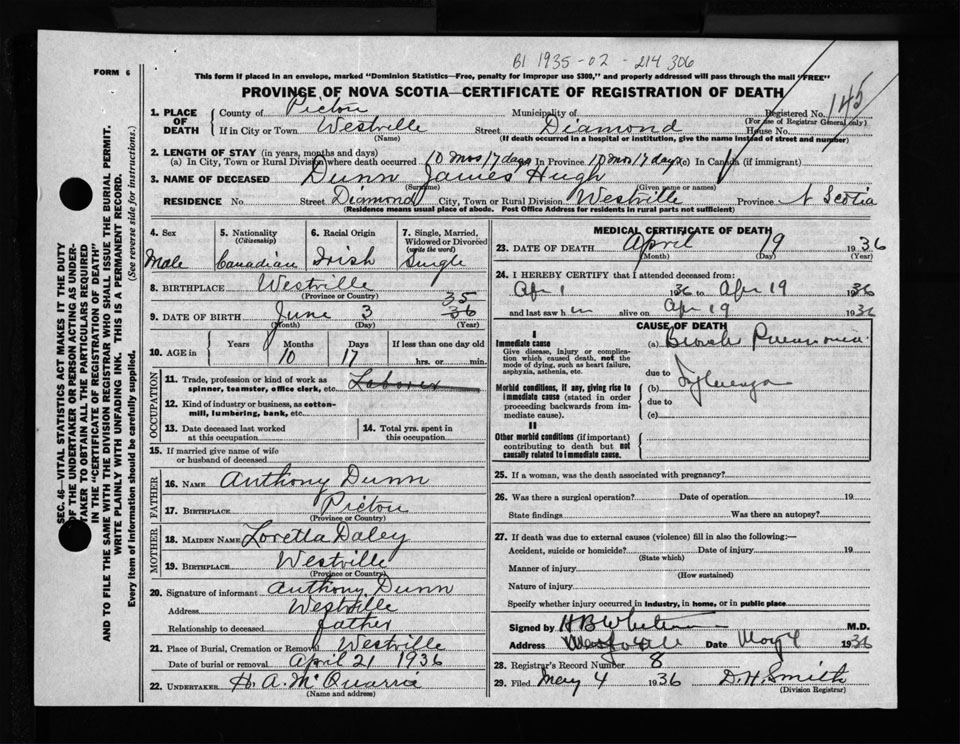 B1 1935-02-214306
FORM 6
This form if placed in an envelope, marked "Dominion Statistics—Free, penalty for improper use $300," and properly addressed will pass through the mail "FREE"
PROVINCE OF NOVA SCOTIA—CERTIFICATE OF REGISTRATION OF DEATH
145
SEC. 46—VITAL STATISTICS ACT MAKES IT THE DUTY
OF THE UNDERTAKER OR PERSON ACTING AS UNDER-
TAKER TO OBTAIN ALL THE PARTICULARS REQUIRED
IN THE "CERTIFICATE OF REGISTRATION OF DEATH"
AND TO FILE THE SAME WITH THE DIVISION REGISTRAR WHO SHALL ISSUE THE BURIAL PERMIT.
WRITE PLAINLY WITH UNFADING INK. THIS IS A PERMANENT RECORD.
Every item of information should be carefully supplied. (See reverse side for instructions.)
1. PLACE OF DEATH County of Pictou Municipality of Registered No.
(For use of Registrar General only)
If in City or Town Westville Street Diamond House No.
(Name) (If death occurred in a hospital or institution, give the name instead of street and number)
2. LENGTH OF STAY (in years, months and days)
(a) In City, Town or Rural Division where death occurred 10 mos 17 days In Province 10 mos 17 days (c) In Canada (if immigrant)
3. NAME OF DECEASED Dunn James Hugh
(Surname) (Given name or names)
RESIDENCE No. Street Diamond City, Town or Rural Division Westville Province N Scotia
(Residence means usual place of abode. Post Office Address for residents in rural parts not sufficient)
4. Sex 5. Nationality (Citizenship) 6. Racial Origin 7. Single, Married, Widowed or Divorced (write the word)
Male Canadian Irish Single
8. BIRTHPLACE Westville
(Province or Country)
9. DATE OF BIRTH June 3 35 36
(Month) (Day) (Year)
10. AGE in Years Months Days If less than one day old
10 17 hrs. or min.
OCCUPATION
11. Trade, profession or kind of work as spinner, teamster, office clerk, etc. Laborer
12. Kind of industry or business, as cotton-mill, lumbering, bank, etc.
13. Date deceased last worked at this occupation
14. Total yrs. spent in this occupation
15. If married give name of wife or husband of deceased
FATHER
16. NAME Anthony Dunn
17. BIRTHPLACE Pictou
(Province or Country)
MOTHER
18. MAIDEN NAME Loretta Daley
19. BIRTHPLACE Westville
(Province or Country)
20. Signature of informant Anthony Dunn
Address Westville
Relationship to deceased father
21. Place of Burial, Cremation or Removal Westville
Date of burial or removal April 21 1936
22. UNDERTAKER H. A. McQuarrie
(Name and address)
MEDICAL CERTIFICATE OF DEATH
23. DATE OF DEATH April 19 1936
(Month) (Day) (Year)
24. I HEREBY CERTIFY that I attended deceased from:
Apr 1 1936 to Apr 19 1936
and last saw him alive on Apr 19 1936
CAUSE OF DEATH
I
Immediate cause
Give disease, injury or complication which caused death, not the mode of dying, such as heart failure, asphyxia, asthenia, etc.
(a) Broncho Pneumonia
due to
Morbid conditions, if any, giving rise to immediate cause (stated in order proceeding backwards from immediate cause).
(b) Influenza
due to
(c)
II
Other morbid conditions (if important) contributing to death but not causally related to immediate cause.
25. If a woman, was the death associated with pregnancy?
26. Was there a surgical operation? Date of operation 19
State findings Was there an autopsy?
27. If death was due to external causes (violence) fill in also the following:—
Accident, suicide or homicide? Date of injury 19
(State which)
Manner of injury
(How sustained)
Nature of injury
Specify whether injury occurred in industry, in home, or in public place
Signed by H B M.D.
Address Westville Date May 4 1936
28. Registrar's Record Number 8
29. Filed May 4 1936 D. H. Smith
(Division Registrar)